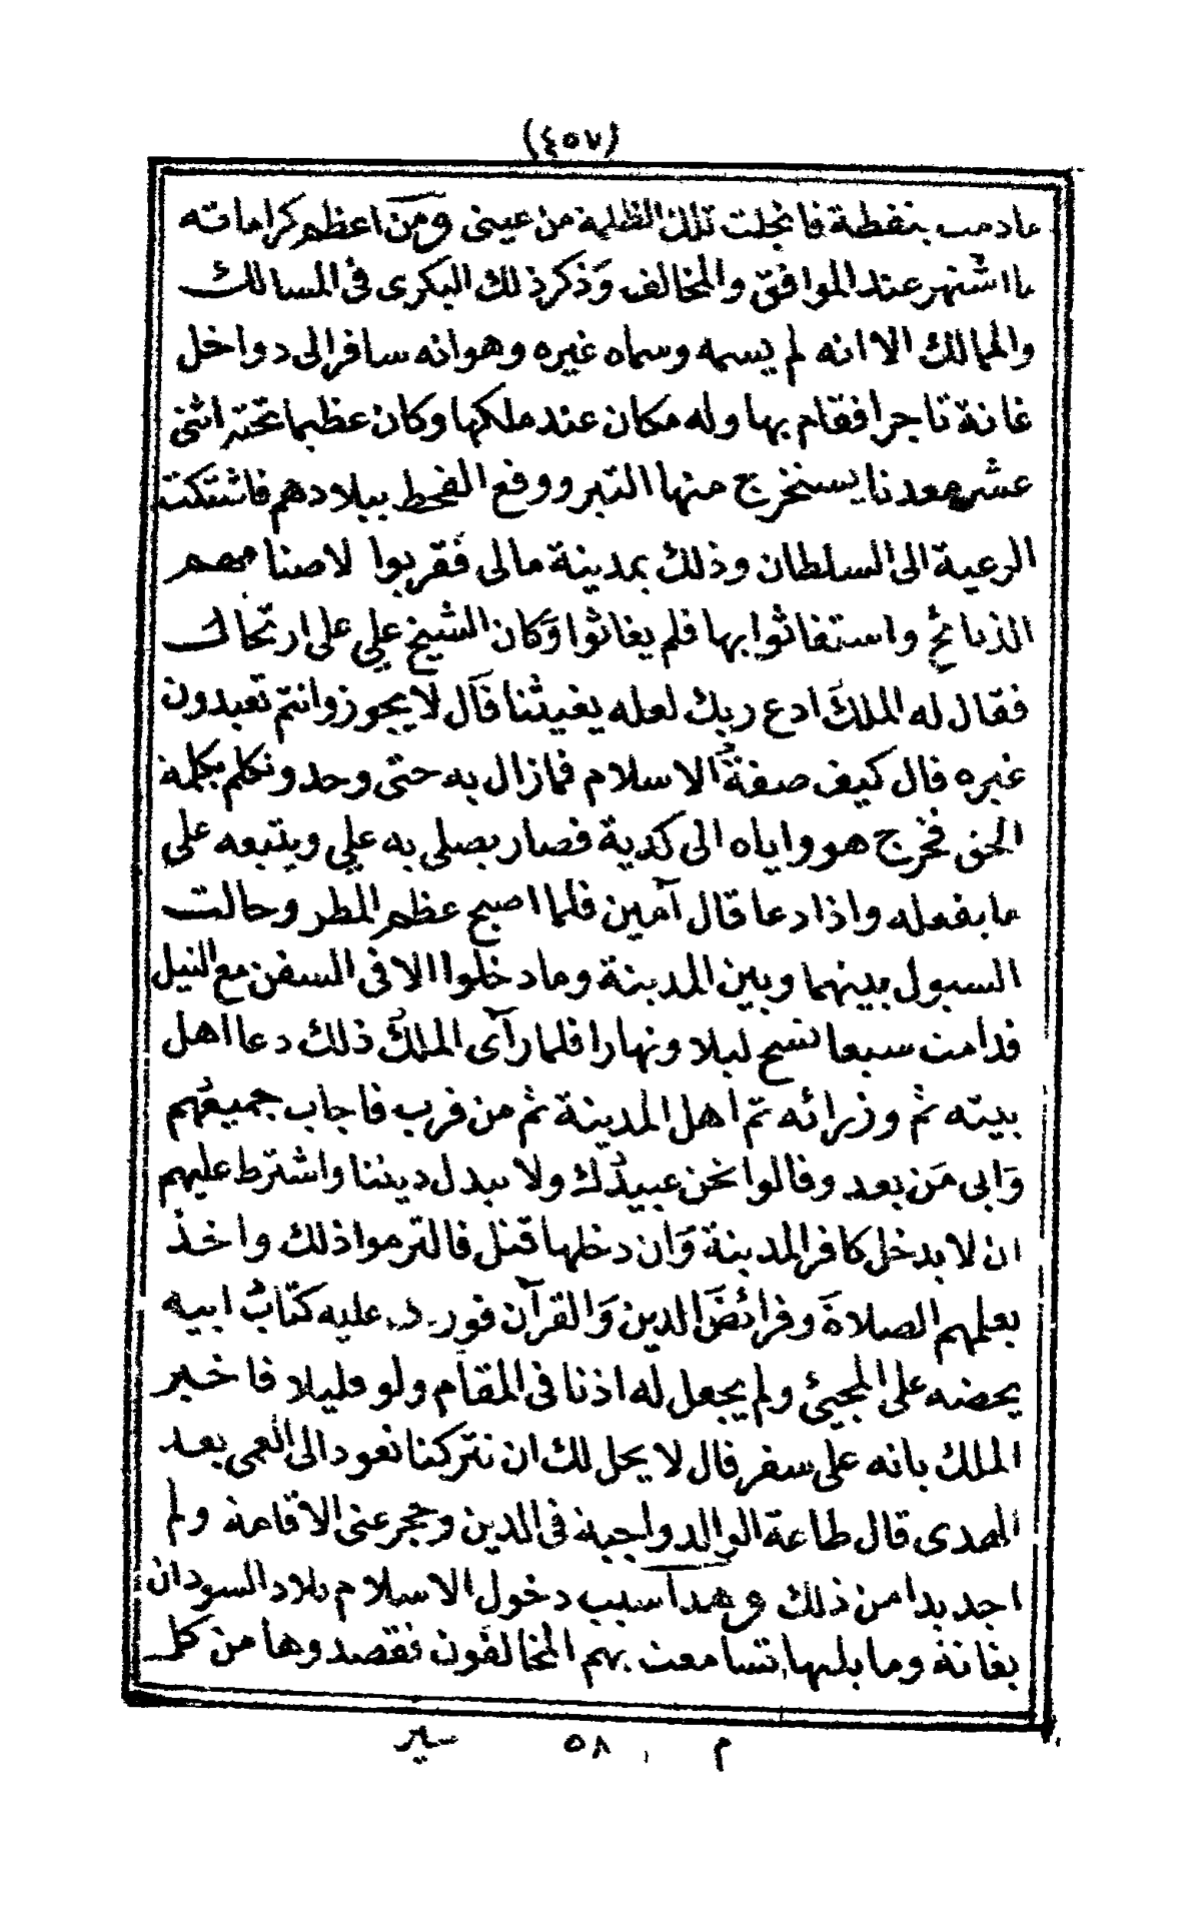 (٤٥٧)
مادمت بنفطة فانجلت تلك الظلمة من عيني ومن اعظم كراماته
ما اشتهر عند الموافق والمخالف وذكر ذلك البكرى فى المسالك
والممالك الا انه لم يسمه وسماه غيره وهو انه سافر الى دواخل
غانة تاجرا فقام بها وله مكان عند ملكها وكان عظيما تحته اثنى
عشر معدنا يستخرج منها التبر ووقع القحط ببلادهم فاشتكت
الرعية الى السلطان وذلك بمدينة مالى فقربوا لاصنامهم
الذبائح واستغاثوا بها فلم يغاثوا وكان الشيخ علي على ارتحال
فقال له الملك ادع ربك لعله يغيثنا قال لا يجوز وانتم تعبدون
غيره قال كيف صفة الاسلام فمازال به حتى وحد وتكلم بكلمة
الحق فخرج هو واياه الى كدية فصار يصلي به علي ويتبعه على
ما يفعله واذا دعا قال آمين فلما اصبح عظم المطر وحالت
السيول بينهما وبين المدينة وما دخلوا الا فى السفن مع النيل
فدامت سبعا تسح ليلا ونهارا فلما رآى الملك ذلك دعا اهل
بيته ثم وزرائه ثم اهل المدينة ثم من قرب فاجاب جميعهم
وابى من بعد وقالوا نحن عبيدك ولا تبدل ديننا واشترط عليهم
ان لا يدخل كافر المدينة وان دخلها قتل فالتزموا ذلك واخذ
يعلمهم الصلاة وفرائض الدين والقرآن فورد عليه كتاب ابيه
يحضه على المجيئ ولم يجعل له اذنا فى المقام ولو قليلا فاخبر
الملك بانه على سفر قال لا يحل لك ان تتركنا نعود الى العمى بعد
الهدى قال طاعة الوالد واجبة فى الدين وحجر عنى الاقامة ولم
اجد بدا من ذلك وهذا سبب دخول الاسلام بلاد السودان
بغانة وما يليها تسامعت بهم المخالفون فقصدوها من كل
م ٥٨ سير